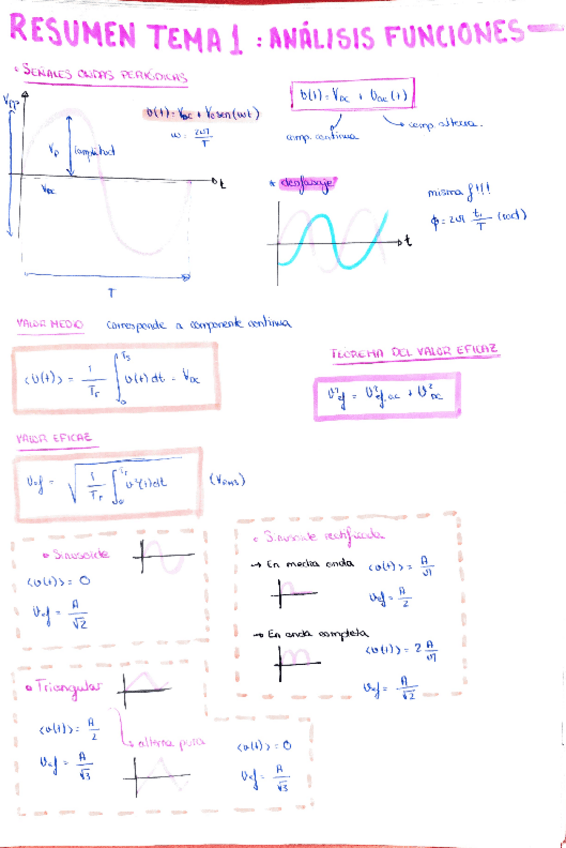 RESUMEN TEMA 1 : ANÁLISIS FUNCIONES
• SEÑALES ONDAS PERIÓDICAS
Vpp
v(t) = V_DC + V_0 sen(ωt)
ω = 2π/T
V_p (amplitud
V_DC
t
T
v(t) = V_DC + v_ac(t)
comp. continua
comp. alterna.
* desfasaje
t
misma f!!!
ϕ = 2π t_1/T (rad)
VALOR MEDIO corresponde a componente continua
<v(t)> = 1/T_r ∫_0^{T_r} v(t) dt = V_DC
TEOREMA DEL VALOR EFICAZ
v²ef = v²ef.ac + v²_DC
VALOR EFICAZ
Vef = √(1/T_r ∫_0^{T_r} v²(t)dt) (V_RMS)
• Sinusoide
<v(t)> = 0
Vef = A/√2
• Sinusoide rectificada
→ En media onda
<v(t)> = A/π
Vef = A/2
→ En onda completa
<v(t)> = 2 A/π
Vef = A/√2
• Triangular
<v(t)> = A/2
Vef = A/√3
alterna pura
<v(t)> = 0
Vef = A/√3